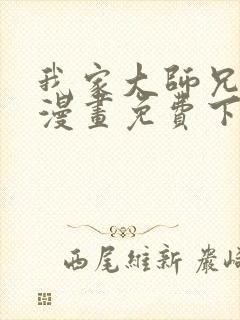 我家大師兄
漫畫免費下
西尾維新 嚴崎